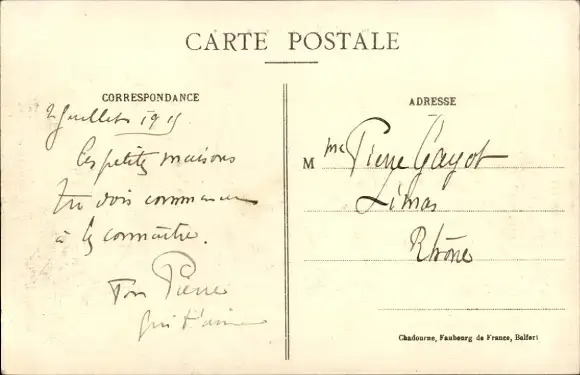 CARTE POSTALE
CORRESPONDANCE
2 Juillet 1915
Les petites maisons
Tu dois commencer
à les connaître.
Ton Pierre
qui t'aime
ADRESSE
M me Pierre Gayot
Limas
Rhône
Chadourne, Faubourg de France, Belfort